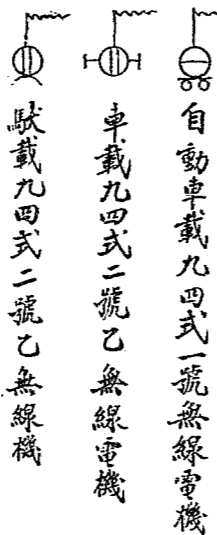 自動車載九四式一號無線電機
車載九四式二號乙無線電機
駄載九四式二號乙無線機